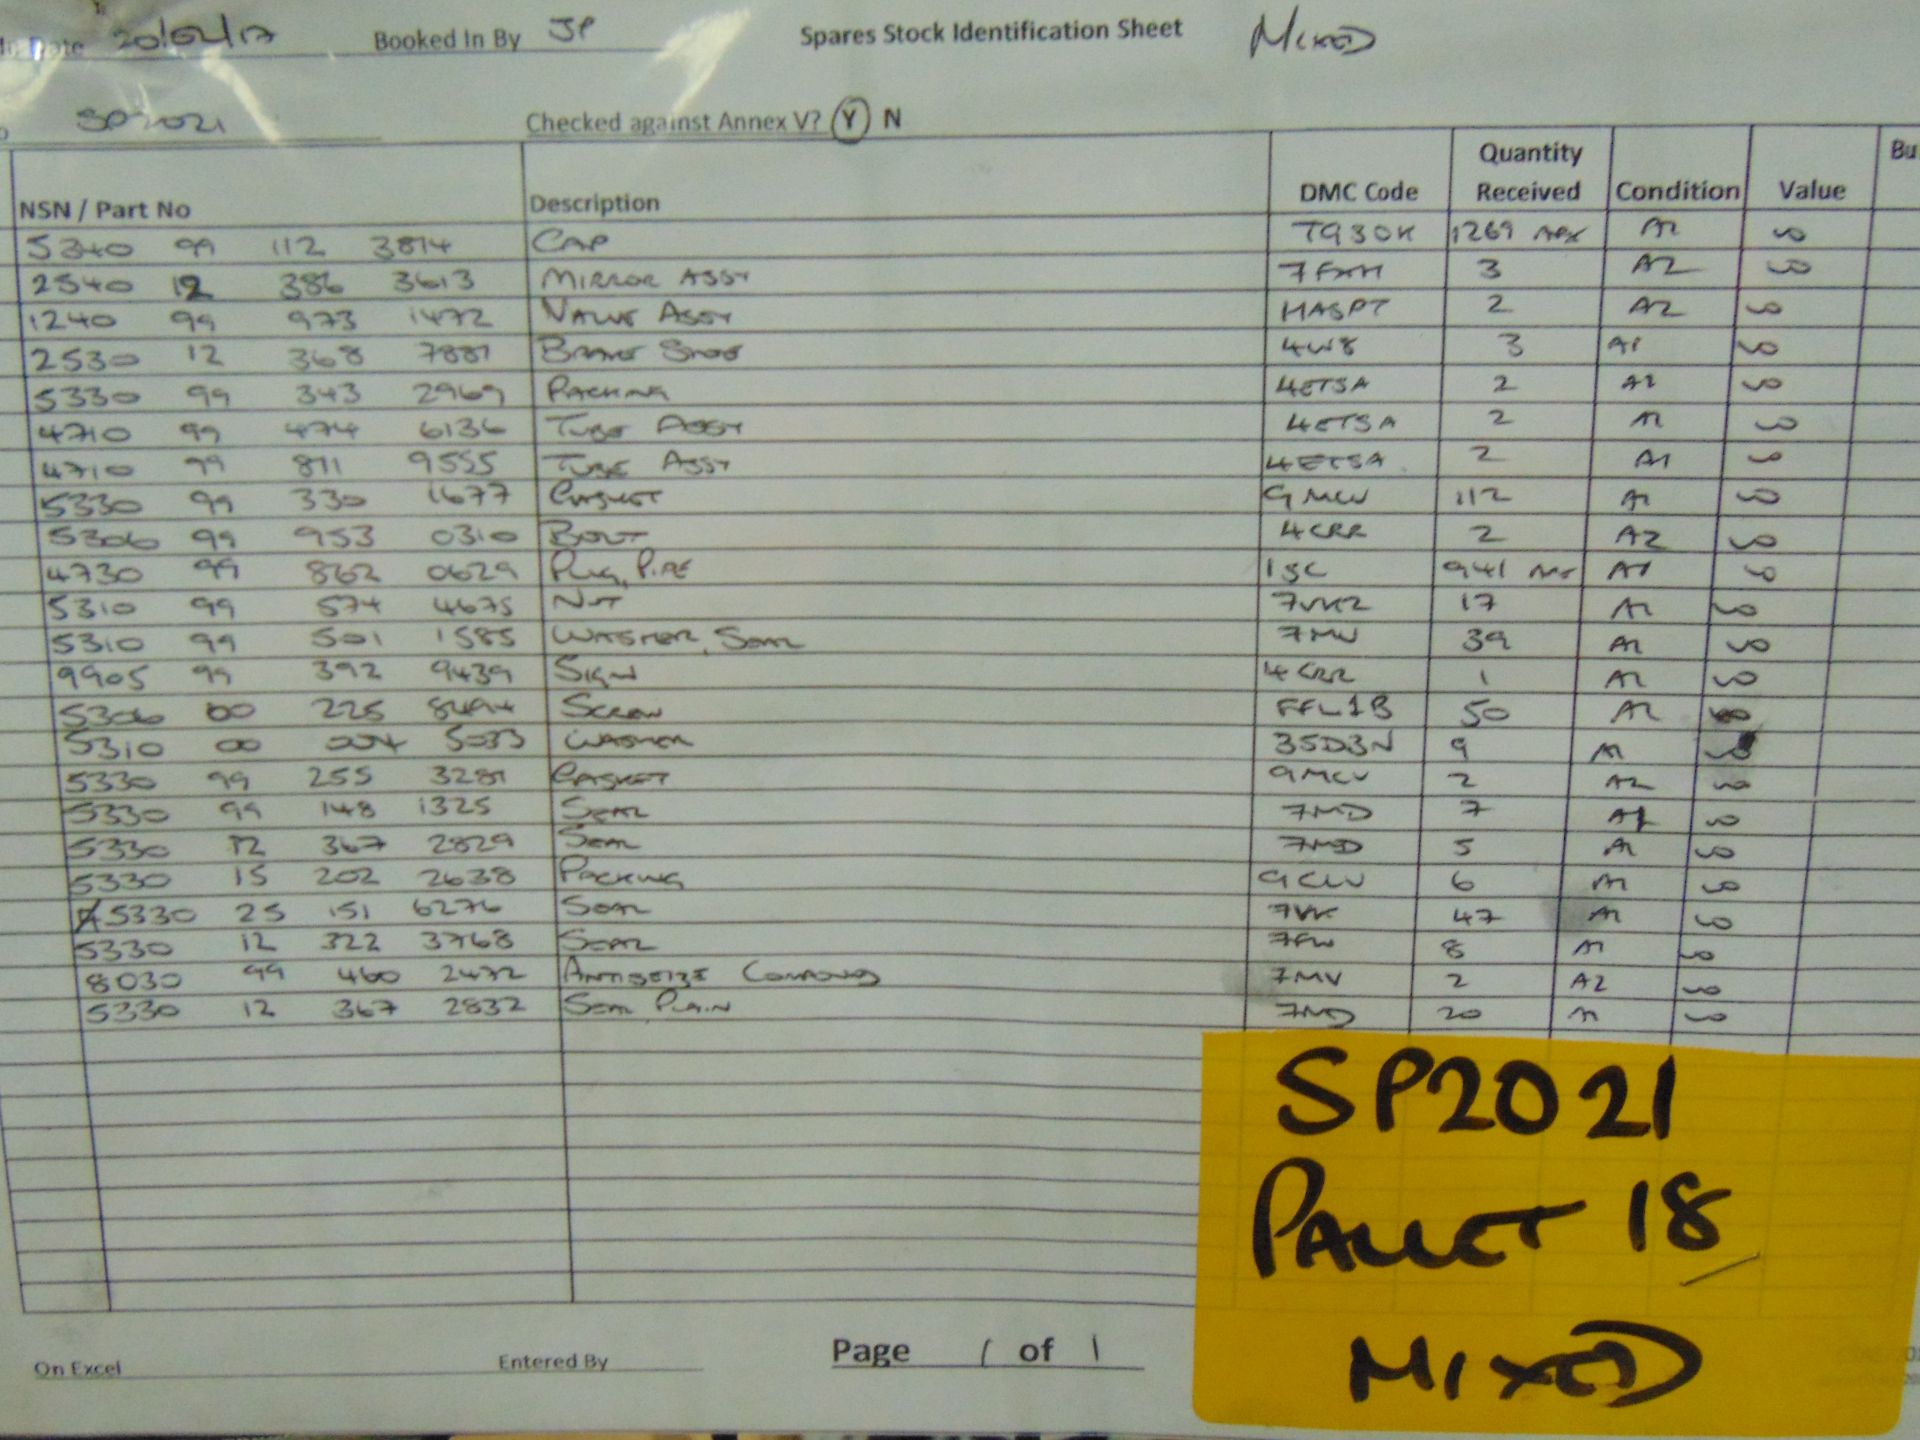 Date 20/02/17 Booked In By JP Spares Stock Identification Sheet MIXED
SP2021 Checked against Annex V? Y N
NSN / Part No Description DMC Code Quantity Received Condition Value Bu
5340 99 112 3814 CAP T930K 1269 APX A1
2540 12 386 3613 MIRROR ASSY 7FXM 3 A2
1240 99 973 1472 VALVE ASSY HASPT 2 A2
2530 12 368 7881 BRAKE SHOE 4W8 3 A1
5330 99 343 2969 PACKING 4ETSA 2 A1
4710 99 474 6136 TUBE ASSY 4ETSA 2 A1
4710 99 811 9555 TUBE ASSY 4ETSA 2 A1
5330 99 330 1677 GASKET 9MCV 112 A1
5306 99 953 0310 BOLT 4CRR 2 A2
4730 99 862 0629 PLUG, PIPE 1SC 941 A1
5310 99 574 4675 NUT 7VK2 17 A1
5310 99 501 1585 WASHER, SEAL 7MV 39 A1
9905 99 392 9439 SIGN 4CRR 1 A1
5306 00 225 8494 SCREW FFL1B 50 A1
5310 00 004 5033 WASHER 35D3N 9 A1
5330 99 255 3281 GASKET 9MCV 2 A2
5330 99 148 1325 SEAL 7MD 7 A1
5330 12 367 2829 SEAL 7MD 5 A1
5330 15 202 2638 PACKING 9CLV 6 A1
5330 25 151 6276 SEAL 7VK 47 A1
5330 12 322 3768 SEAL 7FW 8 A1
8030 99 460 2472 ANTISEIZE COMPOUND 7MV 2 A2
5330 12 367 2832 SEAL PLAIN 7MD 20 A1
SP2021
PALLET 18
MIXED
On Excel Entered By Page 1 of 1